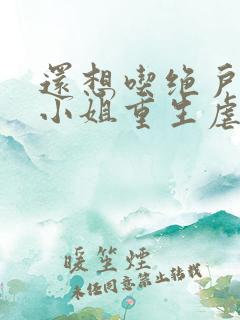 還想喫绝戶
小姐重生虐
暖笙煙
未经同意禁止转载